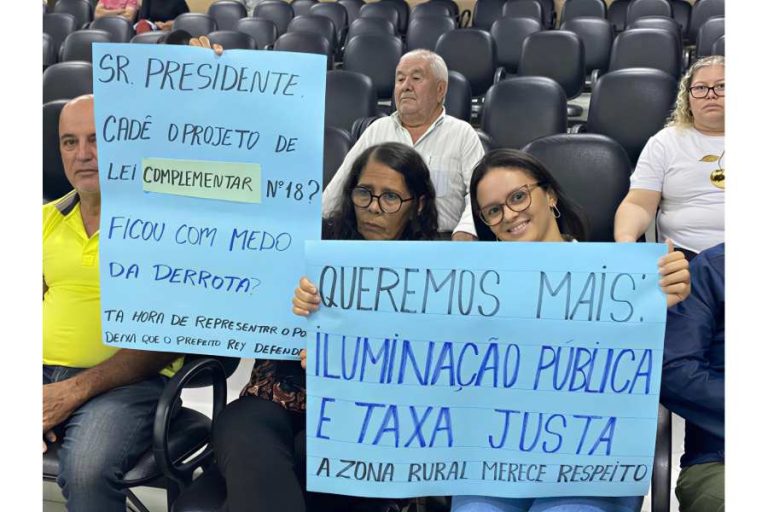 SR. PRESIDENTE.
CADÊ O PROJETO DE
LEI COMPLEMENTAR Nº 18?
FICOU COM MEDO
DA DERROTA?
TA HORA DE REPRESENTAR O
DEIXA QUE O PREFEITO REY DEFENDA
QUEREMOS MAIS:
ILUMINAÇÃO PÚBLICA
E TAXA JUSTA
A ZONA RURAL MERECE RESPEITO